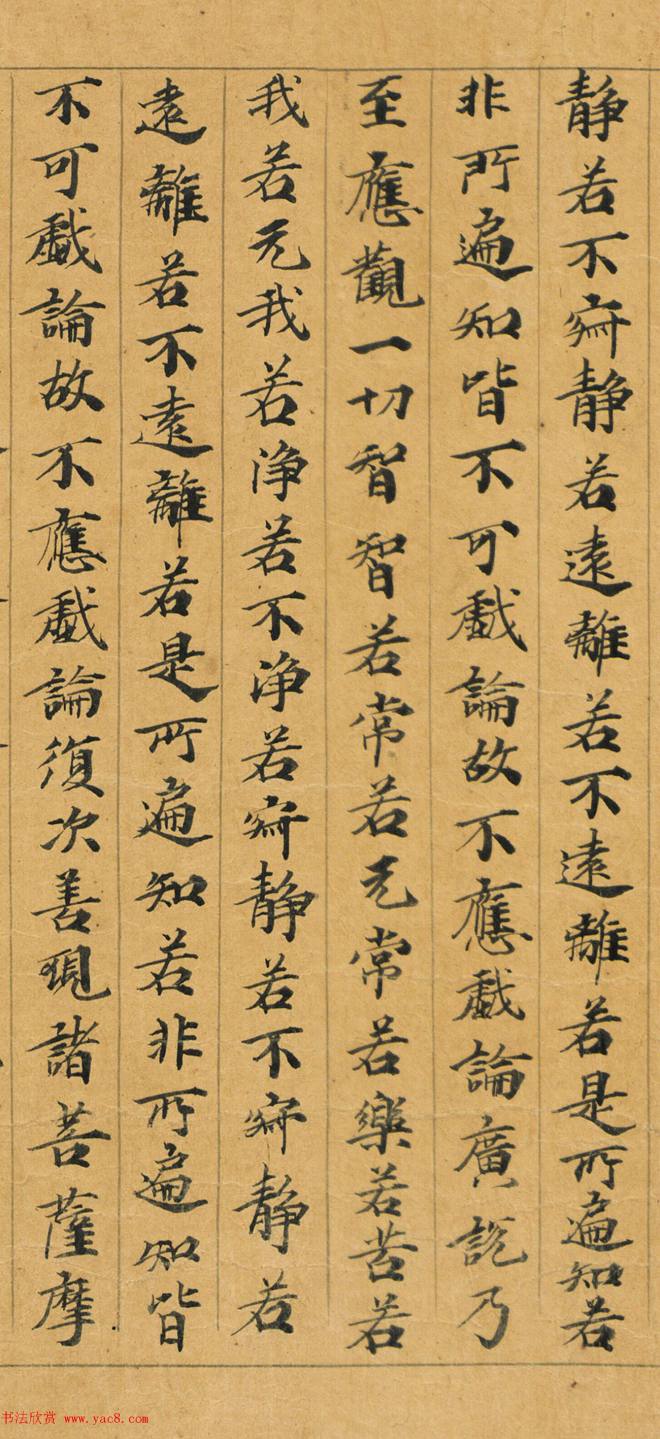 静若不𡧯静若遠離若不遠離若是所遍知若
非所遍知皆不可戲論故不應戲論廣說乃
至應觀一切智智若常若无常若樂若苦若
我若无我若淨若不淨若𡧯静若不𡧯静若
遠離若不遠離若是所遍知若非所遍知皆
不可戲論故不應戲論復次善現諸菩薩摩
书法欣赏 www.yac8.com